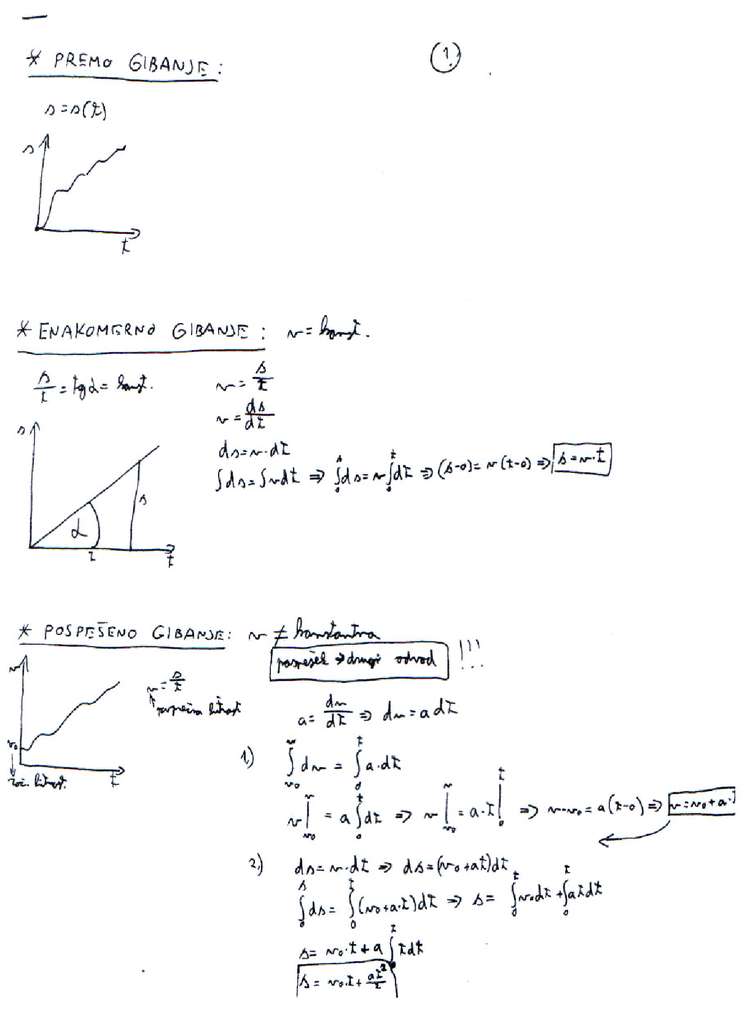 * PREMO GIBANJE:
1.
s = s(t)
s
t
* ENAKOMERNO GIBANJE: v = konst.
s/t = tg α = konst.
v = s/t
v = ds/dt
ds = v·dt
∫ds = ∫vdt ⇒ ∫₀ˢ ds = v∫₀ᵗ dt ⇒ (s-0) = v(t-0) ⇒ s = v·t
s
α
s
t
* POSPEŠENO GIBANJE: v ≠ konstantna
pospešek → drugi odvod !!!
v
v = s/t
povprečna hitrost
v₀
zač. hitrost
t
a = dv/dt ⇒ dv = a dt
1.) ∫ᵥ₀ᵛ dv = ∫₀ᵗ a·dt
v|ᵥ₀ᵛ = a∫₀ᵗ dt ⇒ v|ᵥ₀ᵛ = a·t|₀ᵗ ⇒ v-v₀ = a(t-0) ⇒ v = v₀ + a·
2.) ds = v·dt ⇒ ds = (v₀ + at)dt
∫₀ˢ ds = ∫₀ᵗ (v₀ + a·t)dt ⇒ s = ∫₀ᵗ v₀dt + ∫₀ᵗ atdt
s = v₀·t + a∫₀ᵗ tdt
s = v₀·t + at²/2